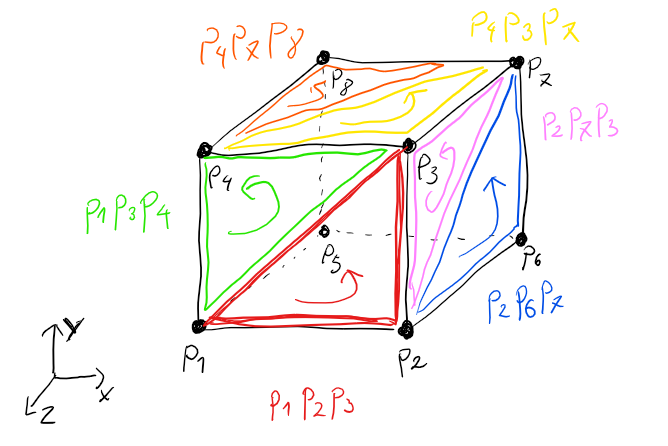 P4P7P8
P4P3P7
P8
P7
P2P7P3
P4
P3
P1P3P4
P5
P6
P2P6P7
P1
P2
Y
X
Z
P1P2P3